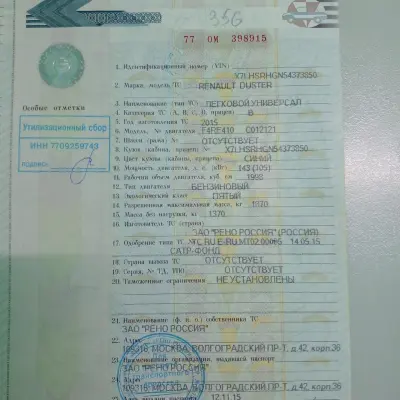 356
77 ОМ 398915
1. Идентификационный номер (VIN) X7LHSRHGN54373350
2. Марка, модель ТС RENAULT DUSTER
3. Наименование (тип ТС) ЛЕГКОВОЙ УНИВЕРСАЛ
Особые отметки
4. Категория ТС (A, B, C, D, прицеп) B
5. Год изготовления ТС 2015
Утилизационный сбор
6. Модель, № двигателя F4RE410 C012121
7. Шасси (рама) № ОТСУТСТВУЕТ
ИНН 7709259743
8. Кузов (кабина, прицеп) № X7LHSRHGN54373350
9. Цвет кузова (кабины, прицепа) СИНИЙ
подпись
10. Мощность двигателя, л.с. (кВт) 143 (105)
11. Рабочий объем двигателя, куб. см 1998
12. Тип двигателя БЕНЗИНОВЫЙ
13. Экологический класс ПЯТЫЙ
14. Разрешенная максимальная масса, кг
15. Масса без нагрузки, кг 1370
16. Изготовитель ТС (страна)
ЗАО "РЕНО РОССИЯ" (РОССИЯ)
17. Одобрение типа ТС № 14.05.15
САТР-ФОНД
18. Страна вывоза ТС ОТСУТСТВУЕТ
19. Серия, № ТД, ТПО ОТСУТСТВУЕТ
20. Таможенные ограничения НЕ УСТАНОВЛЕНЫ
21. Наименование (ф. и. о.) собственника ТС
ЗАО "РЕНО РОССИЯ"
22. Адрес
109316, МОСКВА, ВОЛГОГРАДСКИЙ ПР-Т, д.42, корп.36
23. Наименование организации, выдавшей паспорт
ЗАО "РЕНО РОССИЯ"
24. Адрес
109316, МОСКВА, ВОЛГОГРАДСКИЙ ПР-Т, д.42, корп.36
25. Дата выдачи паспорта 12.11.15